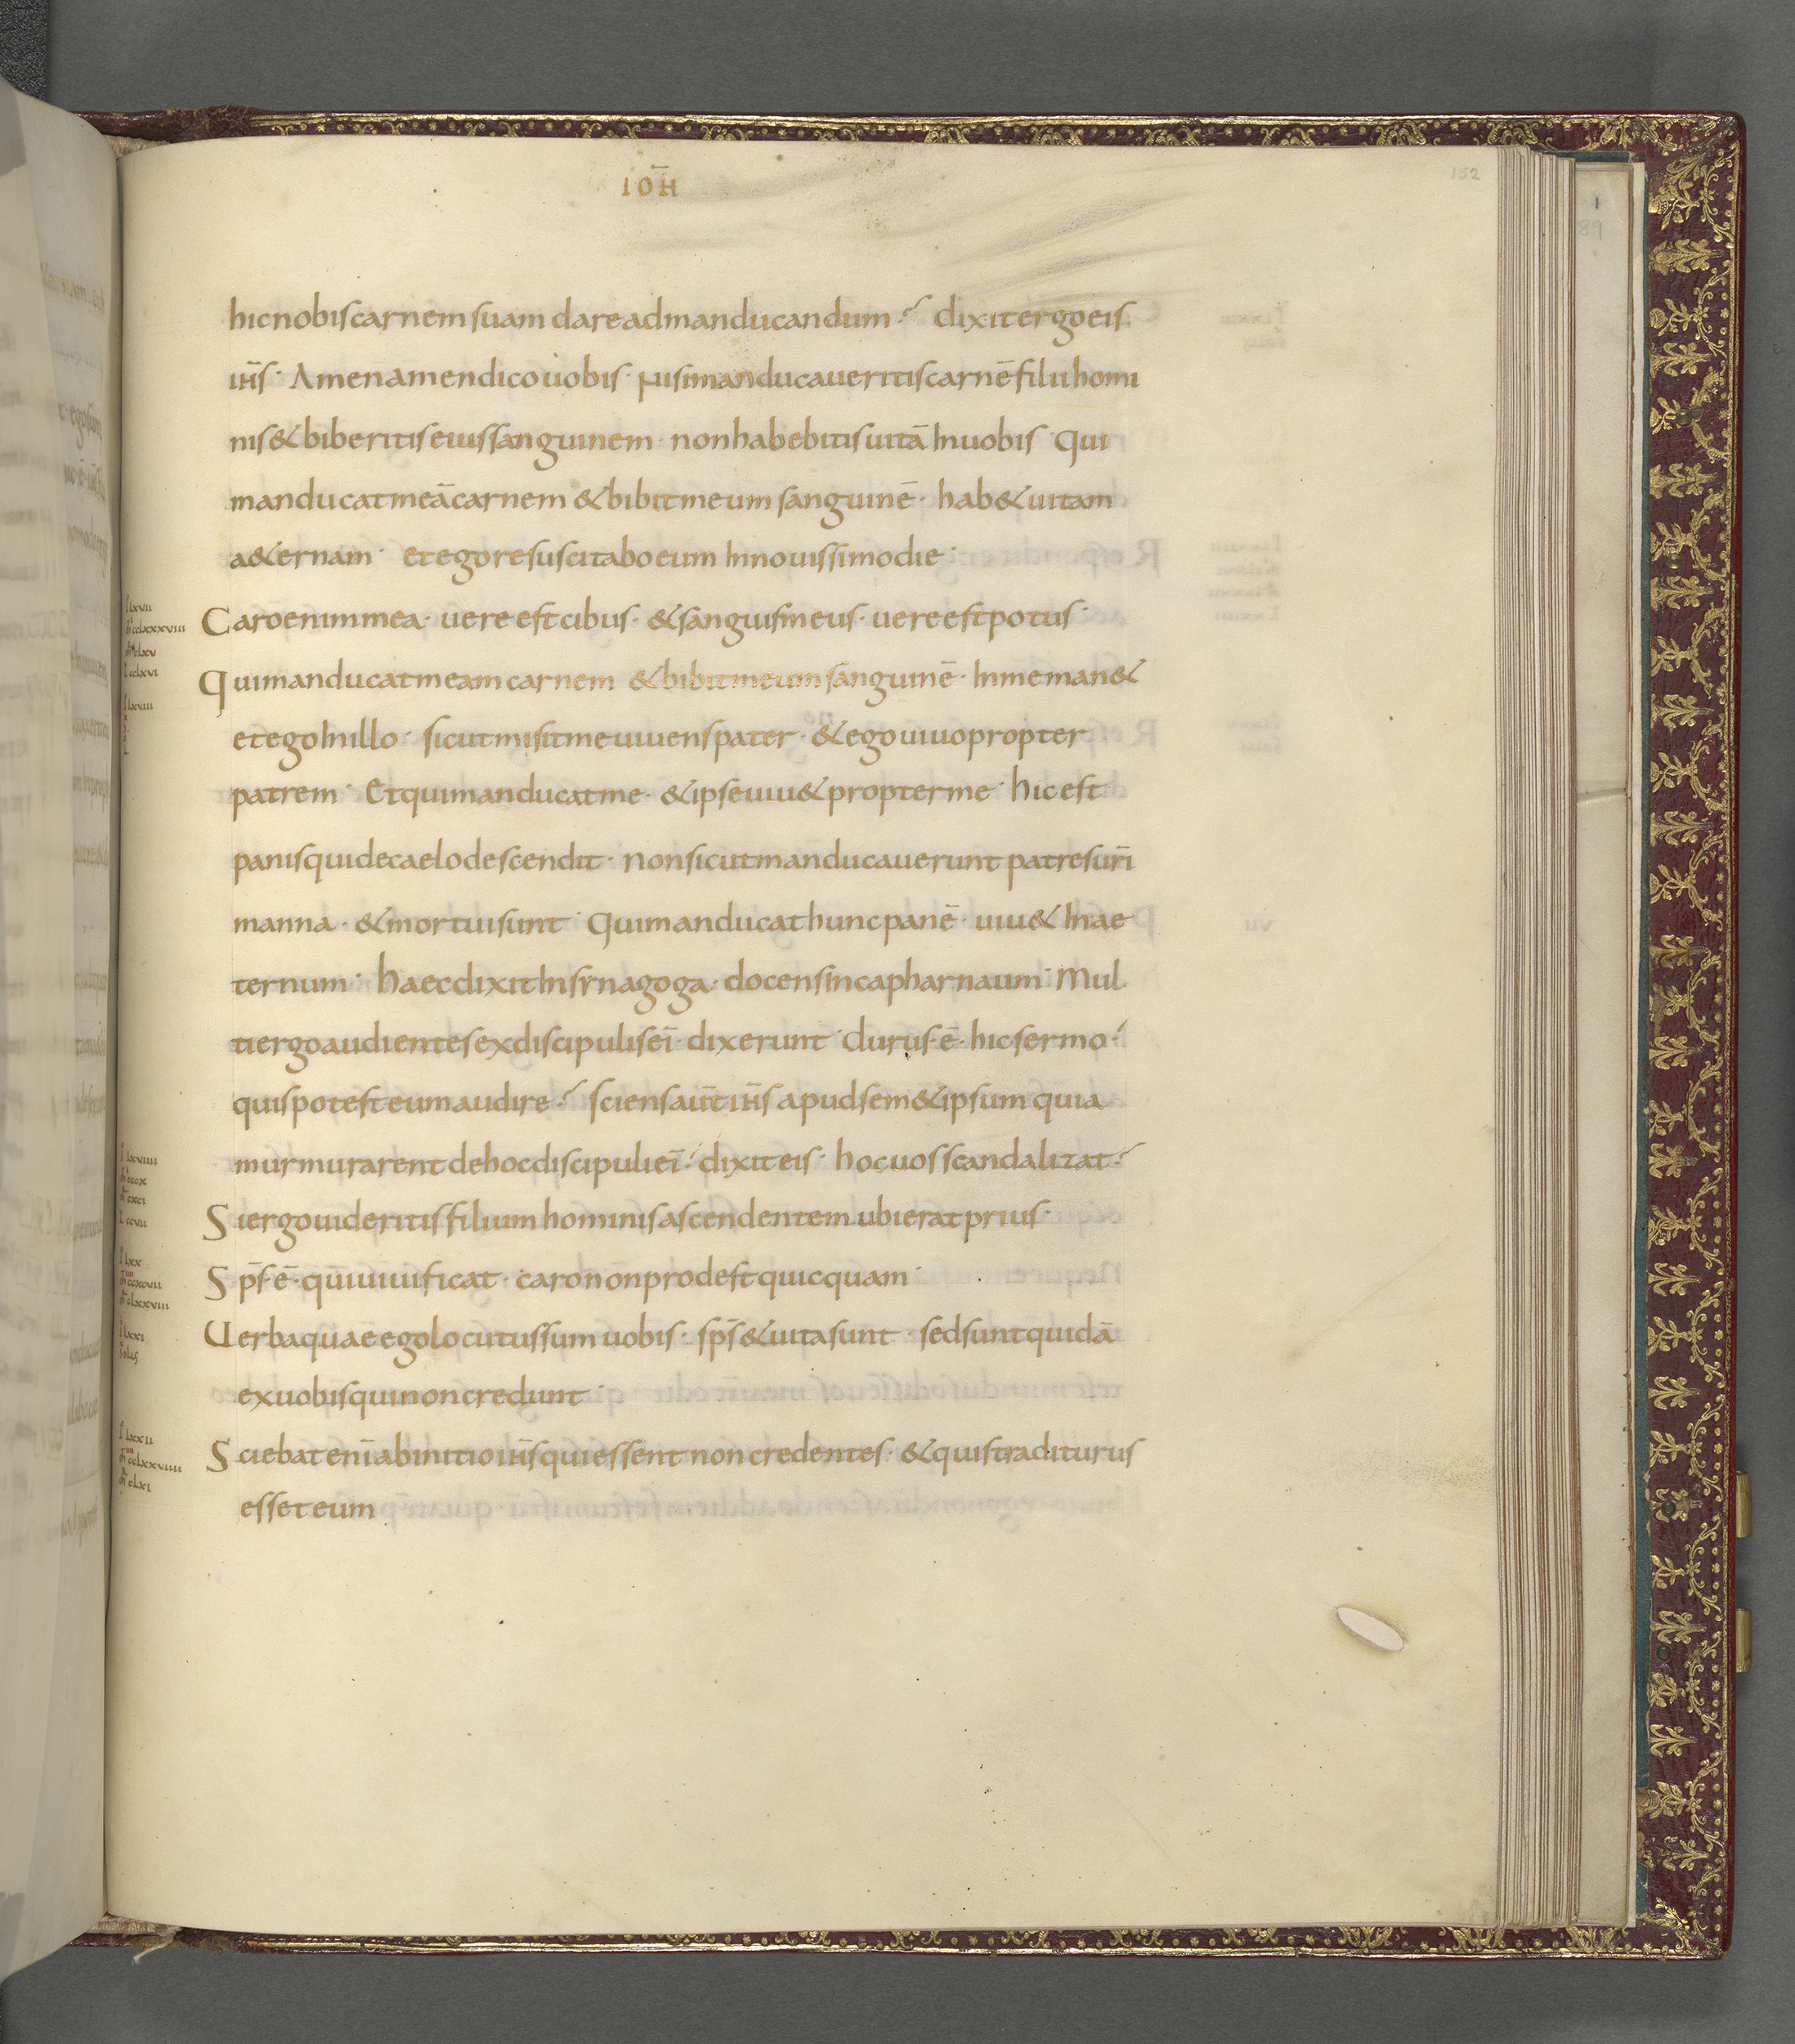 IOH̄
152
hic nobis carnem suam dare ad manducandum? dixit ergo eis
ih̄s· Amen amen dico uobis· Nisi manducaueritis carnē filii homi
nis & biberitis eius sanguinem· non habebitis uitā In uobis· Qui
manducat meā carnem & bibit meum sanguinē· hab& uitam
a&ernam· et ego resuscitabo eum In nouissimo die·
Caro enim mea· uere est cibus· & sanguis meus· uere est potus·
Qui manducat meam carnem & bibit meum sanguinē· In me man&
et ego In illo· sicut misit me uiuens pater· & ego uiuo propter
patrem· Et qui manducat me· & ipse uiu& propter me· hic est
panis qui de caelo descendit· non sicut manducauerunt patres ur̄i
manna· & mortui sunt· Qui manducat hunc panē· uiu& In ae
ternum· haec dixit In synagoga· docens in capharnaum· Mul
ti ergo audientes ex discipulis eī· dixerunt· durus·ē·hic sermo·
quis potest eum audire? sciens aūt ih̄s apud sem&ipsum quia
murmurarent de hoc discipuli eī· dixit eis· hoc uos scandalizat?
Si ergo uideritis filium hominis ascendentem ubi erat prius·
Sp̄s·ē·qui uiuificat· caro non prodest quicquam·
Uerba quae ego locutus sum uobis· sp̄s & uita sunt· sed sunt quidā
ex uobis qui non credunt·
Sciebat enī ab initio ih̄s qui essent non credentes· & quis traditurus
esset eum